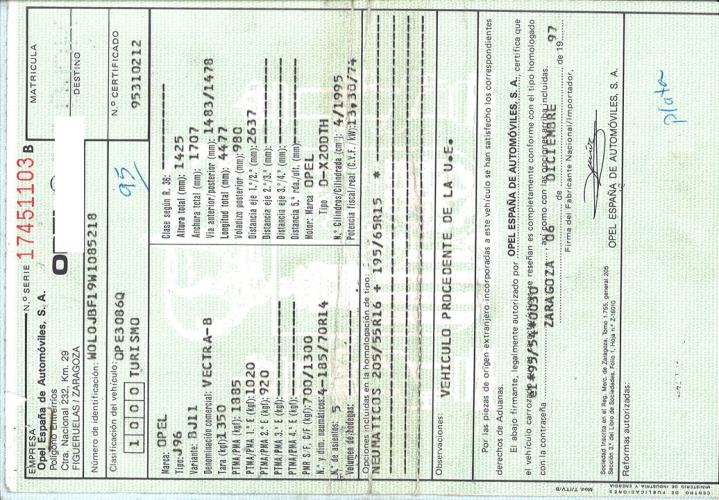 EMPRESA:
Opel España de Automóviles, S. A.
Polígono Entrerríos
Ctra. Nacional 232, Km. 29
FIGUERUELAS / ZARAGOZA
N.º SERIE 17451103 B
MATRICULA
DESTINO
Número de identificación: WOLOJBF19W1085218
N.º CERTIFICADO
95310212
Clasificación del vehículo: OPE3086Q
1 0 0 0 TURISMO
95
Marca: OPEL
Tipo: J96
Variante: BJ11
Denominación comercial: VECTRA-B
Tara (kg) 1350
PTMA/PMA (kg): 1885
PTMA/PMA 1.ª E (kg): 1020
PTMA/PMA 2.ª E (kg): 920
PTMA/PMA 3.ª E (kg):
PTMA/PMA 4.ª E (kg):
PMR S.F./C/F (kg) 700/1300
N.º y dim. neumáticos: 4-185/70R14
N.º de asientos: 5
Volumen de bodegas:
Clase según R. 36:
Altura total (mm): 1425
Anchura total (mm): 1707
Vía anterior/posterior (mm): 1483/1478
Longitud total (mm): 4477
Voladizo posterior (mm): 980
Distancia eje 1.º/2.º (mm): 2637
Distancia eje 2.º/3.º (mm):
Distancia eje 3.º/4.º (mm):
Distancia 5.ª rda./últ. (mm):
Motor: Marca OPEL
Tipo D-X20DTH
N.º Cilindros/Cilindrada (cm³): 4/1995
Potencia fiscal/real (C.V.F./kW): 13,30/74
Opciones incluidas en la homologación de tipo:
NEUMATICOS 205/55R16 + 195/65R15 *
Observaciones: VEHICULO PROCEDENTE DE LA U.E.
Por las piezas de origen extranjero incorporadas a este vehículo se han satisfecho los correspondientes
derechos de Aduanas.
El abajo firmante, legalmente autorizado por OPEL ESPAÑA DE AUTOMÓVILES, S. A., certifica que
el vehículo carrozado se reseñan es completamente conforme con el tipo homologado
con la contraseña e1*95/54*0030 así como con las opciones arriba incluidas.
ZARAGOZA 06 de DICIEMBRE de 19 97
Firma del Fabricante Nacional/Importador,
OPEL ESPAÑA DE AUTOMÓVILES, S. A.
plata
Sociedad inscrita en el Reg. Merc. de Zaragoza, Tomo 1.755, general 205
Sección 3.ª del Libro de Sociedades, Folio 1, Hoja n.º Z-16010
Reformas autorizadas:
Mod. TJ/TV/B
CENTRO DE PUBLICACIONES
MINISTERIO DE INDUSTRIA Y ENERGIA